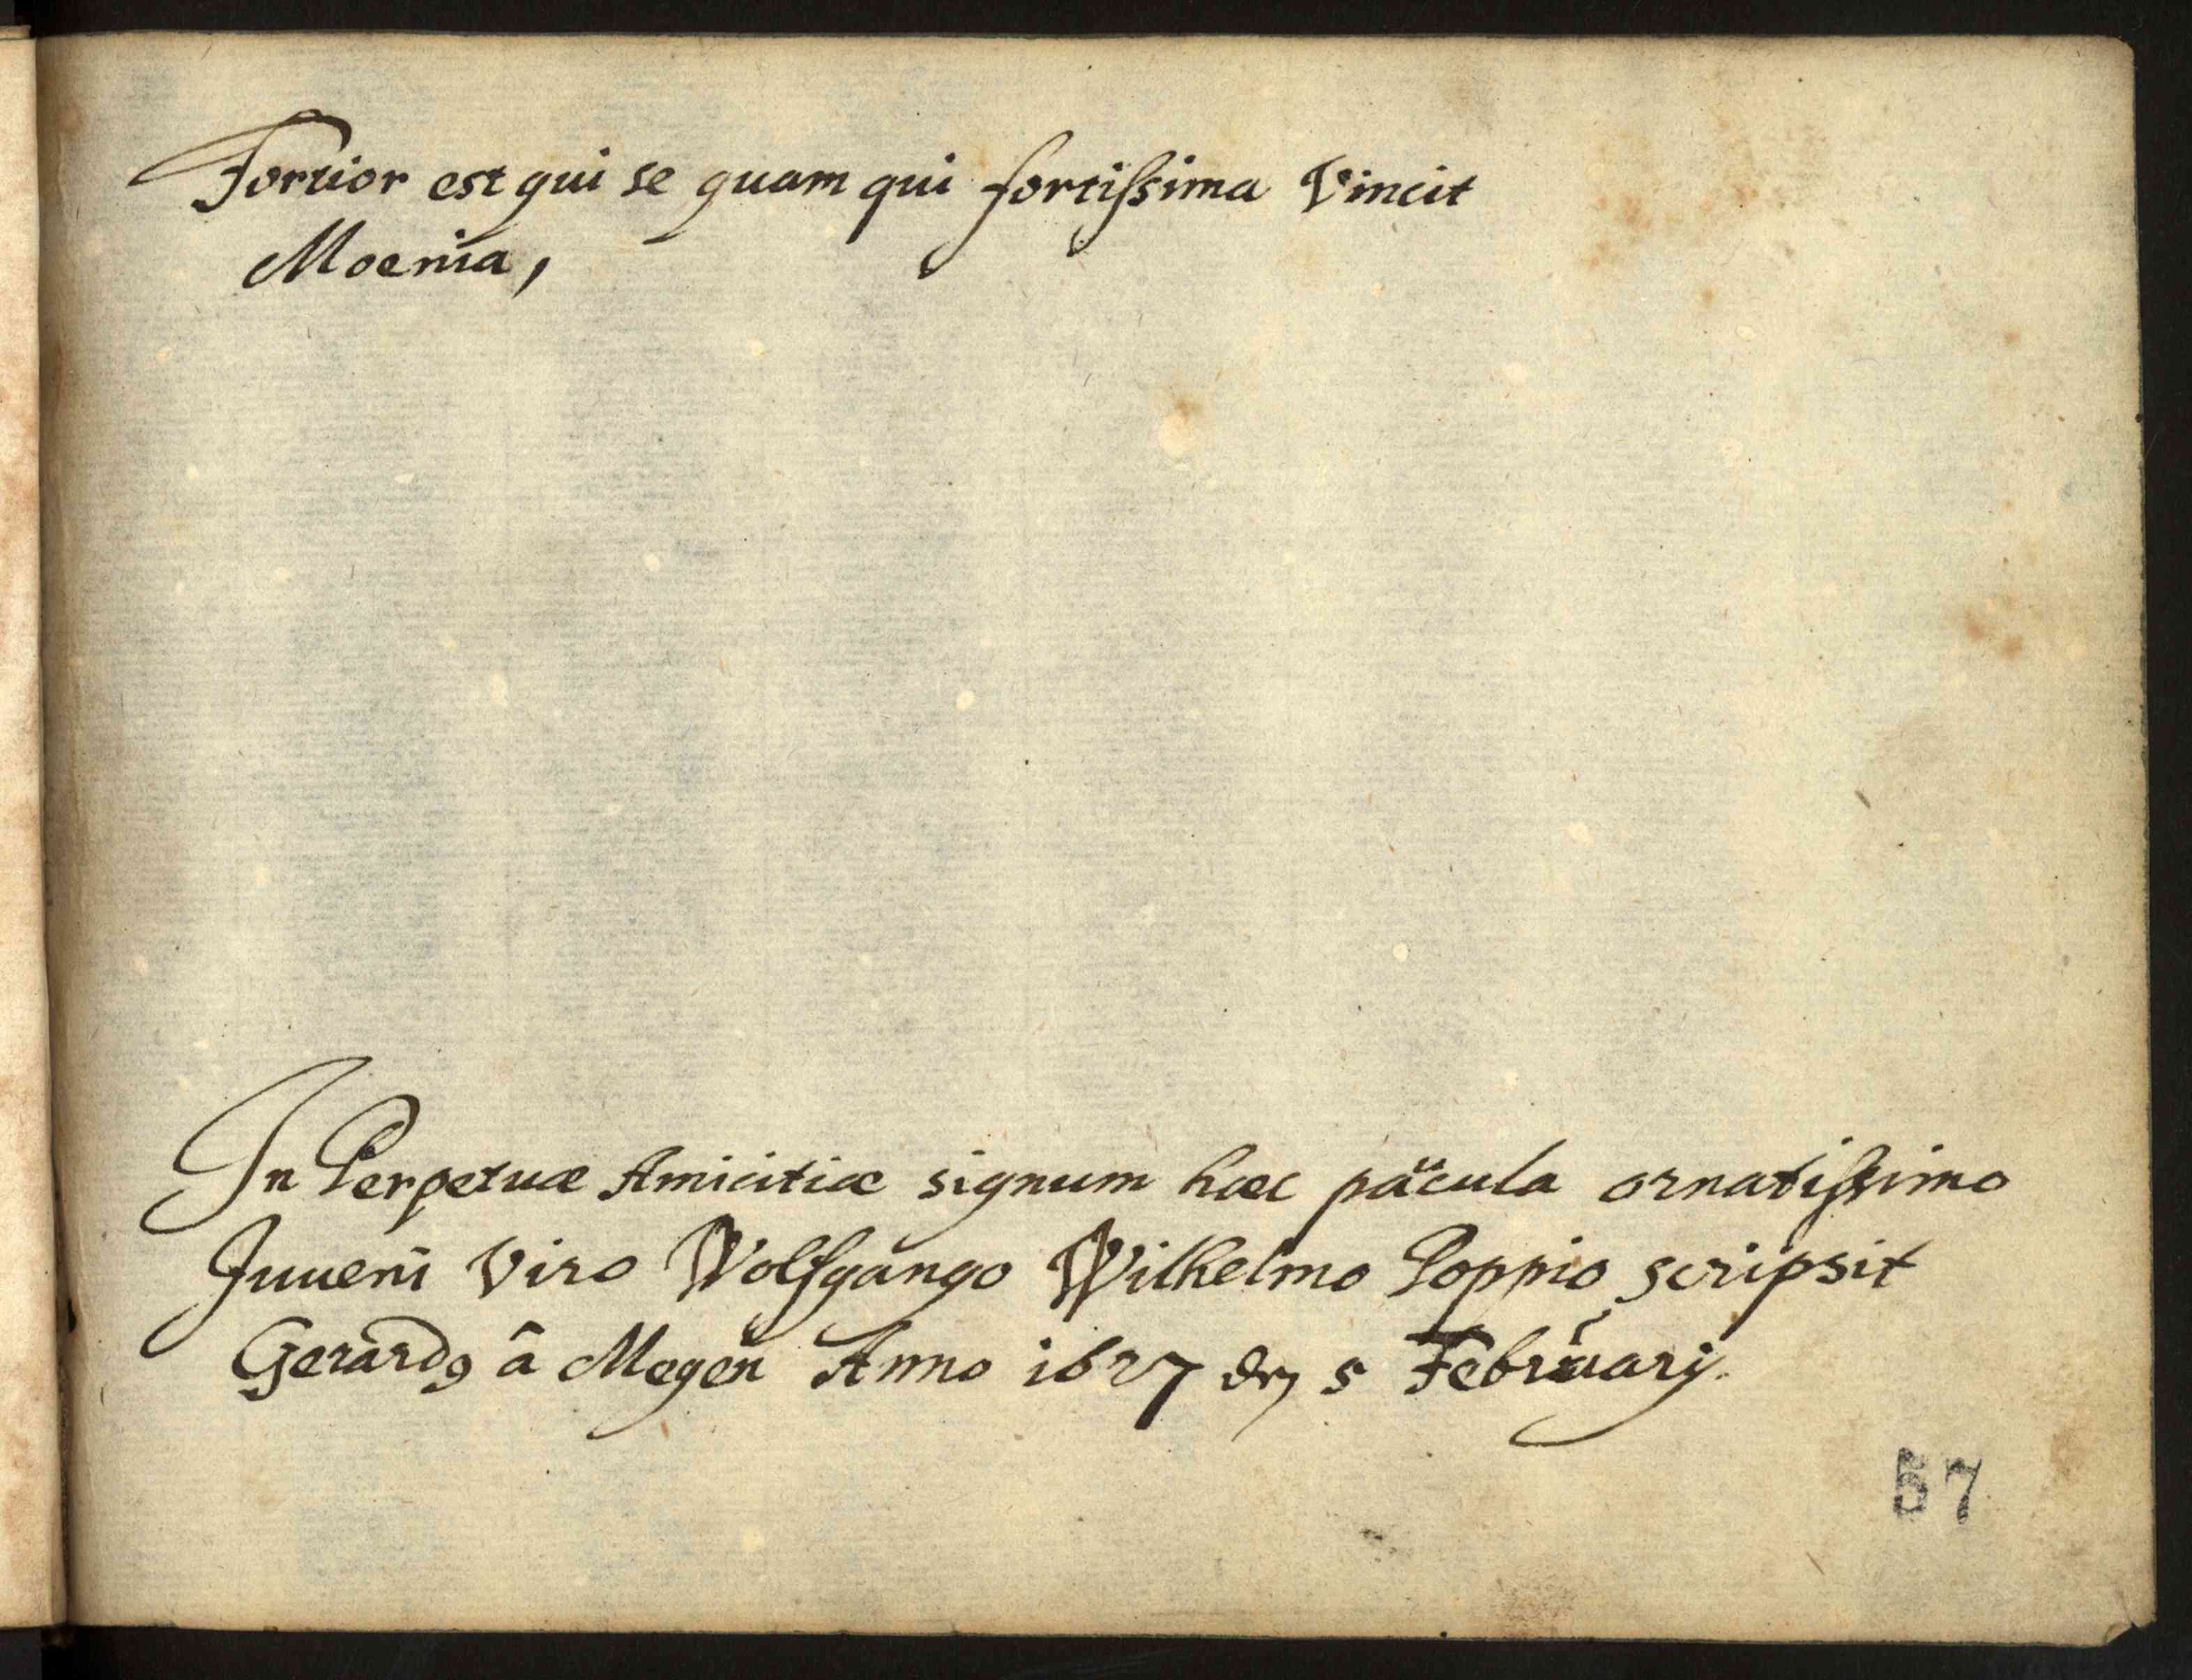 Fortior est qui se quam qui fortißima Vincit
Moenia,
In Perpetuæ Amicitiæ signum hæc paucula ornatißimo
Juueni Viro Wolfgango Wilhelmo Poppio scripsit
Gerardꝰ â Megen Anno 1627 den 5 Februarij.
57